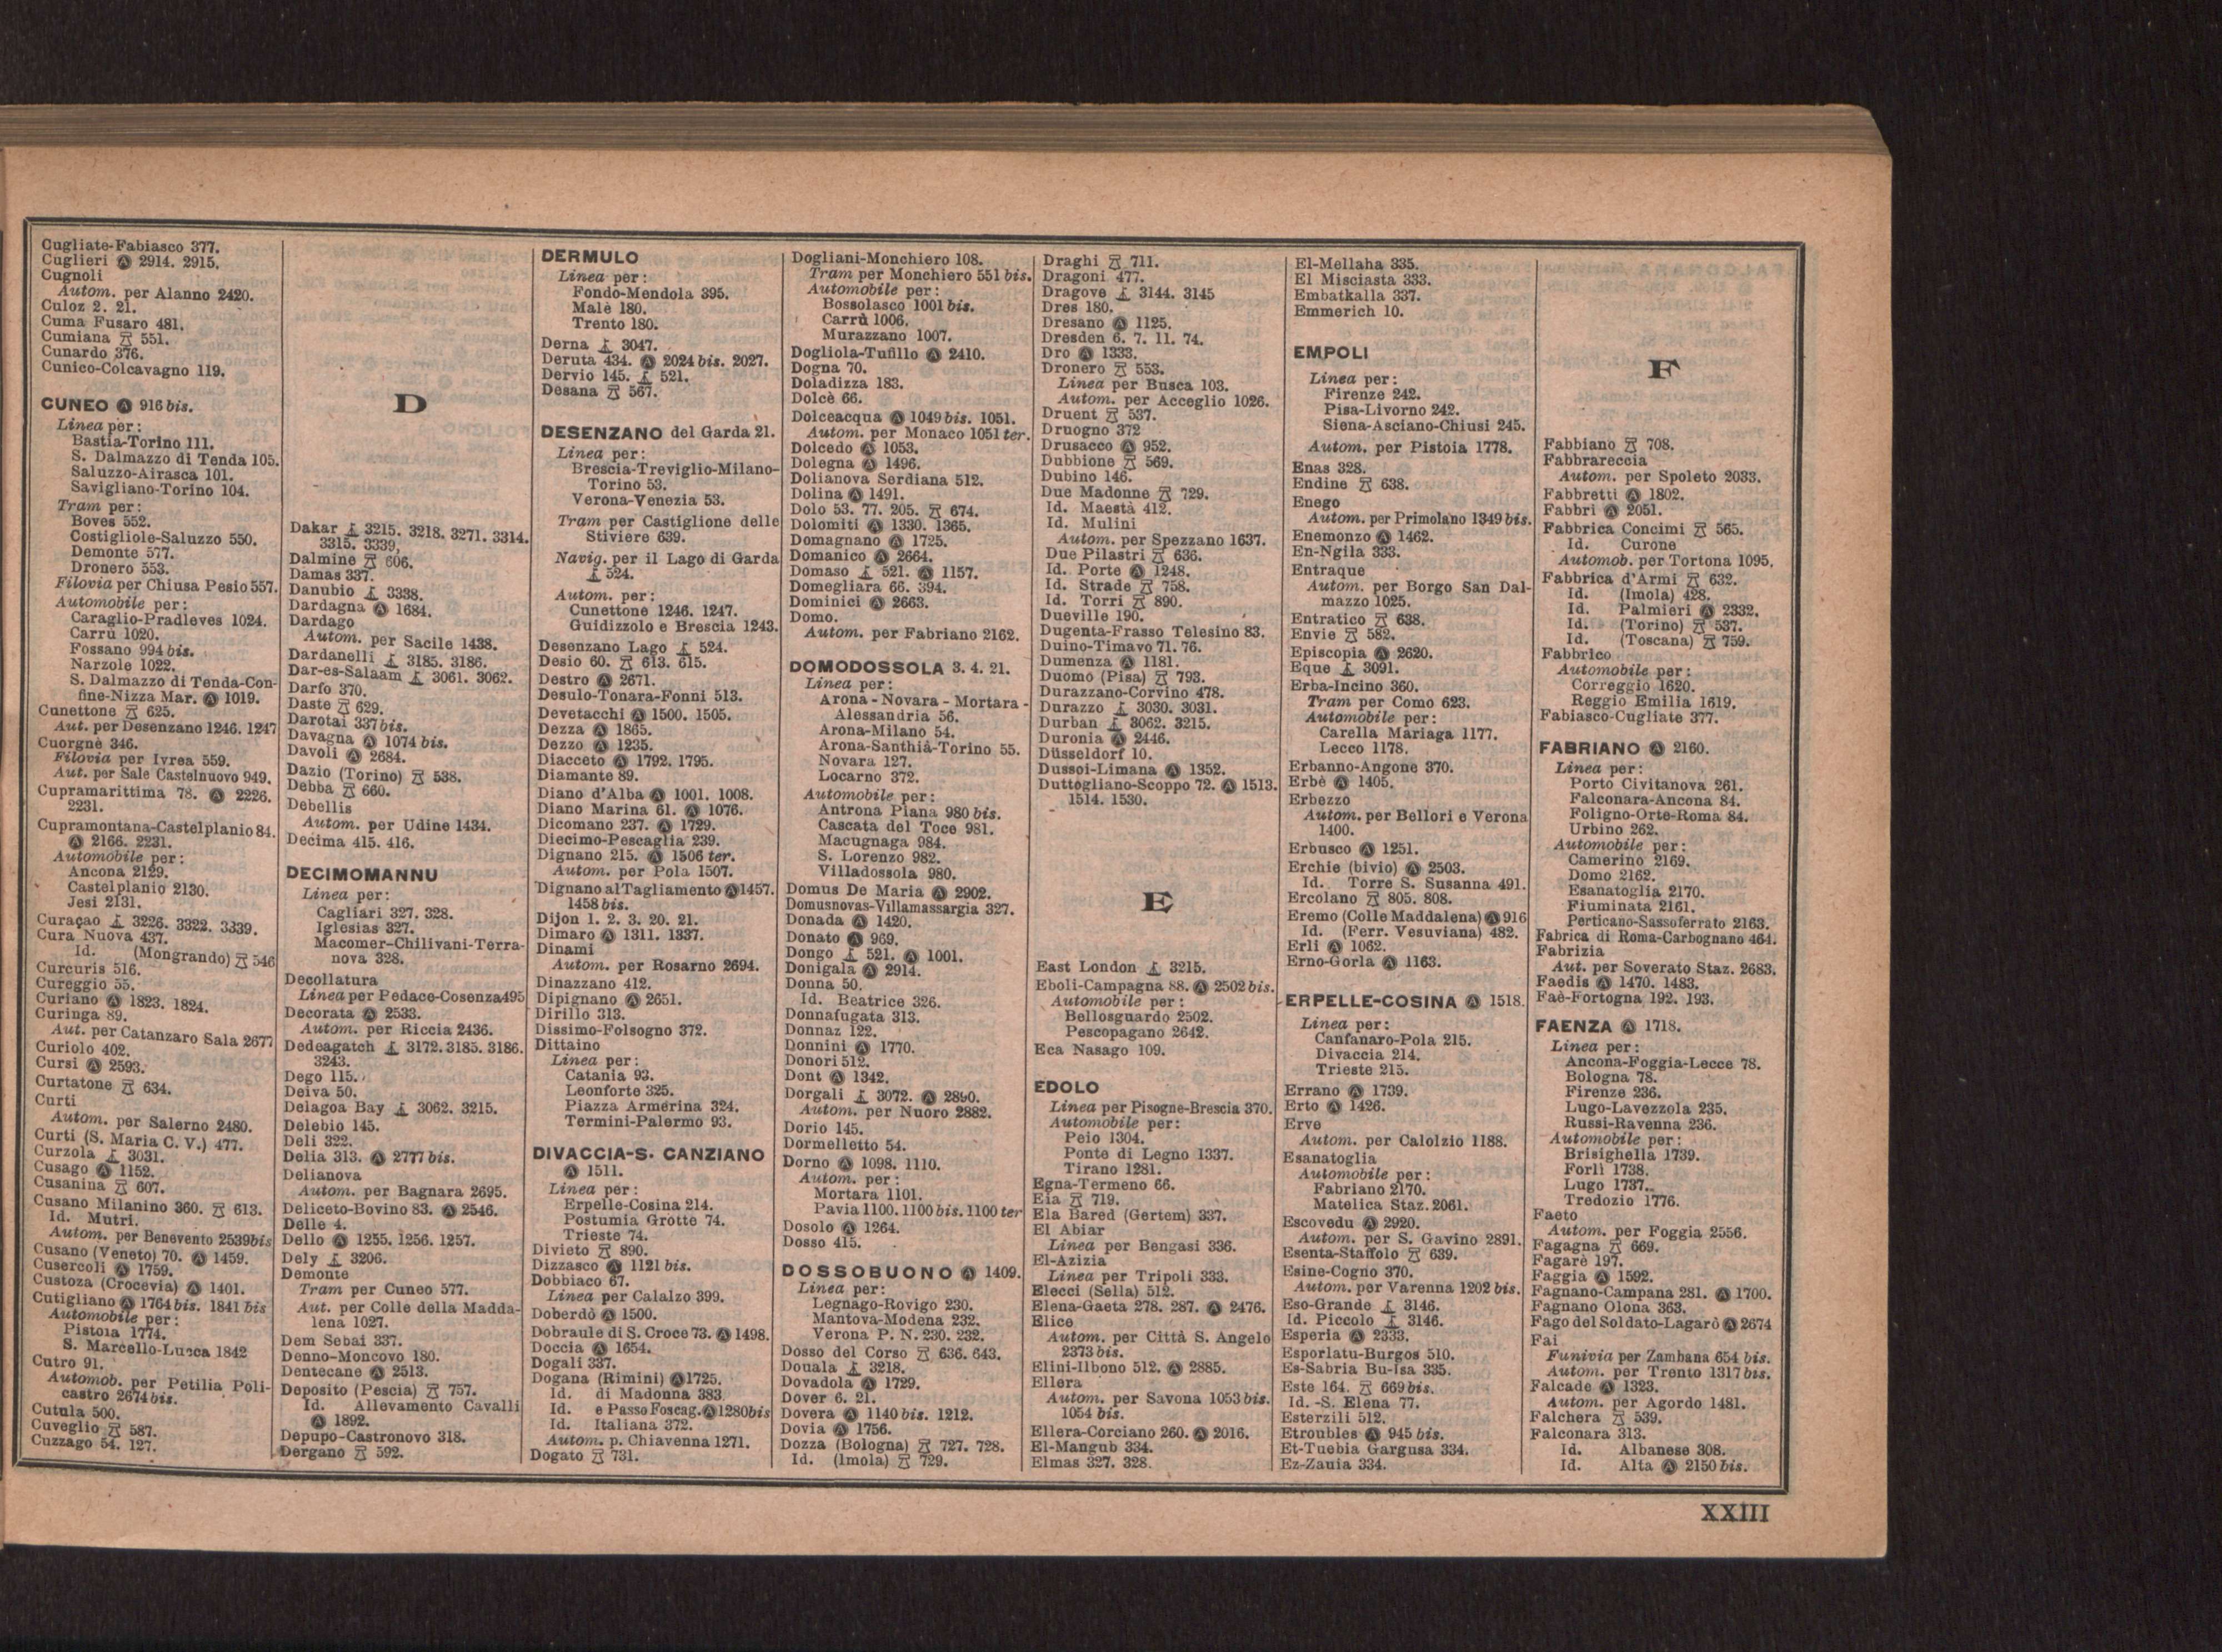 Cugliate-Fabiasco 377.
Cuglieri Ⓐ 2914. 2915.
Cugnoli
Autom. per Alanno 2420.
Culoz 2. 21.
Cuma Fusaro 481.
Cumiana 551.
Cunardo 376.
Cunico-Colcavagno 119.
CUNEO Ⓐ 916 bis.
Linea per:
Bastia-Torino 111.
S. Dalmazzo di Tenda 105.
Saluzzo-Airasca 101.
Savigliano-Torino 104.
Tram per:
Boves 552.
Costigliole-Saluzzo 550.
Demonte 577.
Dronero 553.
Filovia per Chiusa Pesio 557.
Automobile per:
Caraglio-Pradleves 1024.
Carrù 1020.
Fossano 994 bis.
Narzole 1022.
S. Dalmazzo di Tenda-Con-
fine-Nizza Mar. Ⓐ 1019.
Cunettone 625.
Aut. per Desenzano 1246. 1247
Cuorgnè 346.
Filovia per Ivrea 559.
Aut. per Sale Castelnuovo 949.
Cupramarittima 78. Ⓐ 2226.
2231.
Cupramontana-Castelplanio 84.
Ⓐ 2166. 2231.
Automobile per:
Ancona 2129.
Castelplanio 2130.
Jesi 2131.
Curaçao 3226. 3322. 3339.
Cura Nuova 437.
Id. (Mongrando) 546
Curcuris 516.
Cureggio 55.
Curiano Ⓐ 1823. 1824.
Curinga 89.
Aut. per Catanzaro Sala 2677
Curiolo 402.
Cursi Ⓐ 2593.
Curtatone 634.
Curti
Autom. per Salerno 2480.
Curti (S. Maria C. V.) 477.
Curzola 3031.
Cusago Ⓐ 1152.
Cusanina 607.
Cusano Milanino 360. 613.
Id. Mutri.
Autom. per Benevento 2539bis
Cusano (Veneto) 70. Ⓐ 1459.
Cusercoli Ⓐ 1759.
Custoza (Crocevia) Ⓐ 1401.
Cutigliano Ⓐ 1764 bis. 1841 bis
Automobile per:
Pistoia 1774.
S. Marcello-Lucca 1842
Cutro 91.
Automob. per Petilia Poli-
castro 2674 bis.
Cutula 500.
Cuveglio 587.
Cuzzago 54. 127.
D
Dakar 3215. 3218. 3271. 3314.
3315. 3339.
Dalmine 606.
Damas 337.
Danubio 3338.
Dardagna Ⓐ 1684.
Dardago
Autom. per Sacile 1438.
Dardanelli 3185. 3186.
Dar-es-Salaam 3061. 3062.
Darfo 370.
Daste 629.
Darotai 337 bis.
Davagna Ⓐ 1074 bis.
Davoli Ⓐ 2684.
Dazio (Torino) 538.
Debba 660.
Debellis
Autom. per Udine 1434.
Decima 415. 416.
DECIMOMANNU
Linea per:
Cagliari 327. 328.
Iglesias 327.
Macomer-Chilivani-Terra-
nova 328.
Decollatura
Linea per Pedace-Cosenza 495
Decorata Ⓐ 2533.
Autom. per Riccia 2436.
Dedeagatch 3172. 3185. 3186.
3243.
Dego 115.
Deiva 50.
Delagoa Bay 3062. 3215.
Delebio 145.
Deli 322.
Delia 313. Ⓐ 2777 bis.
Delianova
Autom. per Bagnara 2695.
Deliceto-Bovino 83. Ⓐ 2546.
Delle 4.
Dello Ⓐ 1255. 1256. 1257.
Dely 3206.
Demonte
Tram per Cuneo 577.
Aut. per Colle della Madda-
lena 1027.
Dem Sebai 337.
Denno-Moncovo 180.
Dentecane Ⓐ 2513.
Deposito (Pescia) 757.
Id. Allevamento Cavalli
Ⓐ 1892.
Depupo-Castronovo 318.
Dergano 592.
DERMULO
Linea per:
Fondo-Mendola 395.
Malè 180.
Trento 180.
Derna 3047.
Deruta 434. Ⓐ 2024 bis. 2027.
Dervio 145. 521.
Desana 567.
DESENZANO del Garda 21.
Linea per:
Brescia-Treviglio-Milano-
Torino 53.
Verona-Venezia 53.
Tram per Castiglione delle
Stiviere 639.
Navig. per il Lago di Garda
524.
Autom. per:
Cunettone 1246. 1247.
Guidizzolo e Brescia 1243.
Desenzano Lago 524.
Desio 60. 613. 615.
Destro Ⓐ 2671.
Desulo-Tonara-Fonni 513.
Devetacchi Ⓐ 1500. 1505.
Dezza Ⓐ 1865.
Dezzo Ⓐ 1235.
Diacceto Ⓐ 1792. 1795.
Diamante 89.
Diano d'Alba Ⓐ 1001. 1008.
Diano Marina 61. Ⓐ 1076.
Dicomano 237. Ⓐ 1729.
Diecimo-Pescaglia 239.
Dignano 215. Ⓐ 1506 ter.
Autom. per Pola 1507.
Dignano al Tagliamento Ⓐ 1457.
1458 bis.
Dijon 1. 2. 3. 20. 21.
Dimaro Ⓐ 1311. 1337.
Dinami
Autom. per Rosarno 2694.
Dinazzano 412.
Dipignano Ⓐ 2651.
Dirillo 313.
Dissimo-Folsogno 372.
Dittaino
Linea per:
Catania 93.
Leonforte 325.
Piazza Armerina 324.
Termini-Palermo 93.
DIVACCIA-S. CANZIANO
Ⓐ 1511.
Linea per:
Erpelle-Cosina 214.
Postumia Grotte 74.
Trieste 74.
Divieto 890.
Dizzasco Ⓐ 1121 bis.
Dobbiaco 67.
Linea per Calalzo 399.
Doberdò Ⓐ 1500.
Dobraule di S. Croce 73. Ⓐ 1498.
Doccia Ⓐ 1654.
Dogali 337.
Dogana (Rimini) Ⓐ 1725.
Id. di Madonna 383
Id. e Passo Foscag. Ⓐ 1280bis
Id. Italiana 372.
Autom. p. Chiavenna 1271.
Dogato 731.
Dogliani-Monchiero 108.
Tram per Monchiero 551 bis.
Automobile per:
Bossolasco 1001 bis.
Carrù 1006.
Murazzano 1007.
Dogliola-Tufillo Ⓐ 2410.
Dogna 70.
Doladizza 183.
Dolcè 66.
Dolceacqua Ⓐ 1049 bis. 1051.
Autom. per Monaco 1051 ter.
Dolcedo Ⓐ 1053.
Dolegna Ⓐ 1496.
Dolianova Serdiana 512.
Dolina Ⓐ 1491.
Dolo 53. 77. 205. 674.
Dolomiti Ⓐ 1330. 1365.
Domagnano Ⓐ 1725.
Domanico Ⓐ 2664.
Domaso 521. Ⓐ 1157.
Domegliara 66. 394.
Dominici Ⓐ 2663.
Domo.
Autom. per Fabriano 2162.
DOMODOSSOLA 3. 4. 21.
Linea per:
Arona-Novara-Mortara-
Alessandria 56.
Arona-Milano 54.
Arona-Santhià-Torino 55.
Novara 127.
Locarno 372.
Automobile per:
Antrona Piana 980 bis.
Cascata del Toce 981.
Macugnaga 984.
S. Lorenzo 982.
Villadossola 980.
Domus De Maria Ⓐ 2902.
Domusnovas-Villamassargia 327.
Donada Ⓐ 1420.
Donato Ⓐ 969.
Dongo 521. Ⓐ 1001.
Donigala Ⓐ 2914.
Donna 50.
Id. Beatrice 326.
Donnafugata 313.
Donnaz 122.
Donnini Ⓐ 1770.
Donori 512.
Dont Ⓐ 1342.
Dorgali 3072. Ⓐ 2880.
Autom. per Nuoro 2882.
Dorio 145.
Dormelletto 54.
Dorno Ⓐ 1098. 1110.
Autom. per:
Mortara 1101.
Pavia 1100. 1100 bis. 1100 ter
Dosolo Ⓐ 1264.
Dosso 415.
DOSSOBUONO Ⓐ 1409.
Linea per:
Legnago-Rovigo 230.
Mantova-Modena 232.
Verona P. N. 230. 232.
Dosso del Corso 636. 643.
Douala 3218.
Dovadola Ⓐ 1729.
Dover 6. 21.
Dovera Ⓐ 1140 bis. 1212.
Dovia Ⓐ 1756.
Dozza (Bologna) 727. 728.
Id. (Imola) 729.
Draghi 711.
Dragoni 477.
Dragove 3144. 3145
Dres 180.
Dresano Ⓐ 1125.
Dresden 6. 7. 11. 74.
Dro Ⓐ 1333.
Dronero 553.
Linea per Busca 103.
Autom. per Acceglio 1026.
Druent 537.
Druogno 372
Drusacco Ⓐ 952.
Dubbione 569.
Dubino 146.
Due Madonne 729.
Id. Maestà 412.
Id. Mulini
Autom. per Spezzano 1637.
Due Pilastri 636.
Id. Porte Ⓐ 1248.
Id. Strade 758.
Id. Torri 890.
Dueville 190.
Dugenta-Frasso Telesino 83.
Duino-Timavo 71. 76.
Dumenza Ⓐ 1181.
Duomo (Pisa) 793.
Durazzano-Corvino 478.
Durazzo 3030. 3031.
Durban 3062. 3215.
Duronia Ⓐ 2446.
Düsseldorf 10.
Dussoi-Limana Ⓐ 1352.
Duttogliano-Scoppo 72. Ⓐ 1513.
1514. 1530.
E
East London 3215.
Eboli-Campagna 88. Ⓐ 2502 bis.
Automobile per:
Bellosguardo 2502.
Pescopagano 2642.
Eca Nasago 109.
EDOLO
Linea per Pisogne-Brescia 370.
Automobile per:
Peio 1304.
Ponte di Legno 1337.
Tirano 1281.
Egna-Termeno 66.
Eia 719.
Ela Bared (Gertem) 337.
El Abiar
Linea per Bengasi 336.
El-Azizia
Linea per Tripoli 333.
Elecci (Sella) 512.
Elena-Gaeta 278. 287. Ⓐ 2476.
Elice
Autom. per Città S. Angelo
2373 bis.
Elini-Ilbono 512. Ⓐ 2885.
Ellera
Autom. per Savona 1053 bis.
1054 bis.
Ellera-Corciano 260. Ⓐ 2016.
El-Mangub 334.
Elmas 327. 328.
El-Mellaha 335.
El Misciasta 333.
Embatkalla 337.
Emmerich 10.
EMPOLI
Linea per:
Firenze 242.
Pisa-Livorno 242.
Siena-Asciano-Chiusi 245.
Autom. per Pistoia 1778.
Enas 328.
Endine 638.
Enego
Autom. per Primolano 1349 bis.
Enemonzo Ⓐ 1462.
En-Ngila 333.
Entraque
Autom. per Borgo San Dal-
mazzo 1025.
Entratico 638.
Envie 582.
Episcopia Ⓐ 2620.
Eque 3091.
Erba-Incino 360.
Tram per Como 623.
Automobile per:
Carella Mariaga 1177.
Lecco 1178.
Erbanno-Angone 370.
Erbè Ⓐ 1405.
Erbezzo
Autom. per Bellori e Verona
1400.
Erbusco Ⓐ 1251.
Erchie (bivio) Ⓐ 2503.
Id. Torre S. Susanna 491.
Ercolano 805. 808.
Eremo (Colle Maddalena) Ⓐ 916
Id. (Ferr. Vesuviana) 482.
Erli Ⓐ 1062.
Erno-Gorla Ⓐ 1163.
ERPELLE-COSINA Ⓐ 1518.
Linea per:
Canfanaro-Pola 215.
Divaccia 214.
Trieste 215.
Errano Ⓐ 1739.
Erto Ⓐ 1426.
Erve
Autom. per Calolzio 1188.
Esanatoglia
Automobile per:
Fabriano 2170.
Matelica Staz. 2061.
Escovedu Ⓐ 2920.
Autom. per S. Gavino 2891.
Esenta-Staffolo 639.
Esine-Cogno 370.
Autom. per Varenna 1202 bis.
Eso-Grande 3146.
Id. Piccolo 3146.
Esperia Ⓐ 2333.
Esporlatu-Burgos 510.
Es-Sabria Bu-Isa 335.
Este 164. 669 bis.
Id. -S. Elena 77.
Esterzili 512.
Etroubles Ⓐ 945 bis.
Et-Tuebia Gargusa 334.
Ez-Zauia 334.
F
Fabbiano 708.
Fabbrareccia
Autom. per Spoleto 2033.
Fabbretti Ⓐ 1802.
Fabbri Ⓐ 2051.
Fabbrica Concimi 565.
Id. Curone
Automob. per Tortona 1095.
Fabbrica d'Armi 632.
Id. (Imola) 428.
Id. Palmieri Ⓐ 2332.
Id. (Torino) 537.
Id. (Toscana) 759.
Fabbrico
Automobile per:
Correggio 1620.
Reggio Emilia 1619.
Fabiasco-Cugliate 377.
FABRIANO Ⓐ 2160.
Linea per:
Porto Civitanova 261.
Falconara-Ancona 84.
Foligno-Orte-Roma 84.
Urbino 262.
Automobile per:
Camerino 2169.
Domo 2162.
Esanatoglia 2170.
Fiuminata 2161.
Perticano-Sassoferrato 2163.
Fabrica di Roma-Carbognano 464.
Fabrizia
Aut. per Soverato Staz. 2683.
Faedis Ⓐ 1470. 1483.
Faè-Fortogna 192. 193.
FAENZA Ⓐ 1718.
Linea per:
Ancona-Foggia-Lecce 78.
Bologna 78.
Firenze 236.
Lugo-Lavezzola 235.
Russi-Ravenna 236.
Automobile per:
Brisighella 1739.
Forlì 1738.
Lugo 1737.
Tredozio 1776.
Faeto
Autom. per Foggia 2556.
Fagagna 669.
Fagarè 197.
Faggia Ⓐ 1592.
Fagnano-Campana 281. Ⓐ 1700.
Fagnano Olona 363.
Fago del Soldato-Lagarò Ⓐ 2674
Fai
Funivia per Zambana 654 bis.
Autom. per Trento 1317 bis.
Falcade Ⓐ 1323.
Autom. per Agordo 1481.
Falchera 539.
Falconara 313.
Id. Albanese 308.
Id. Alta Ⓐ 2150 bis.
XXIII